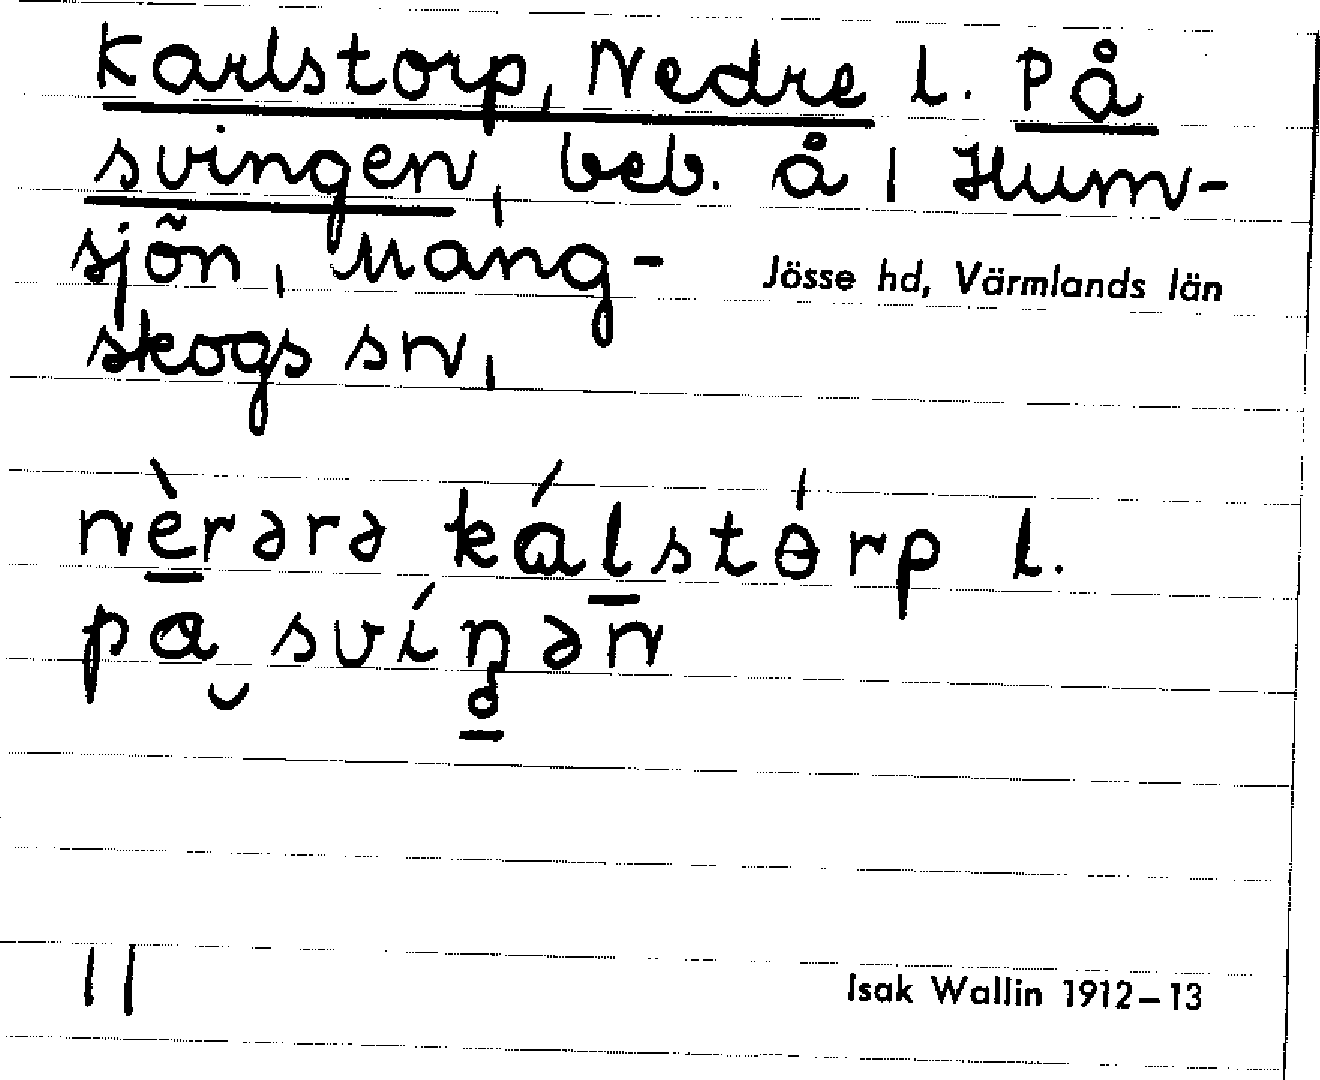 Karlstorp, Nedre l. På
svingen, beb. å 1 Hum-
sjön, Mång-
Jösse hd, Värmlands län
skogs sn,
nèrərə kálstɵ́rp l.
pa svíŋən
11
Isak Wallin 1912–13